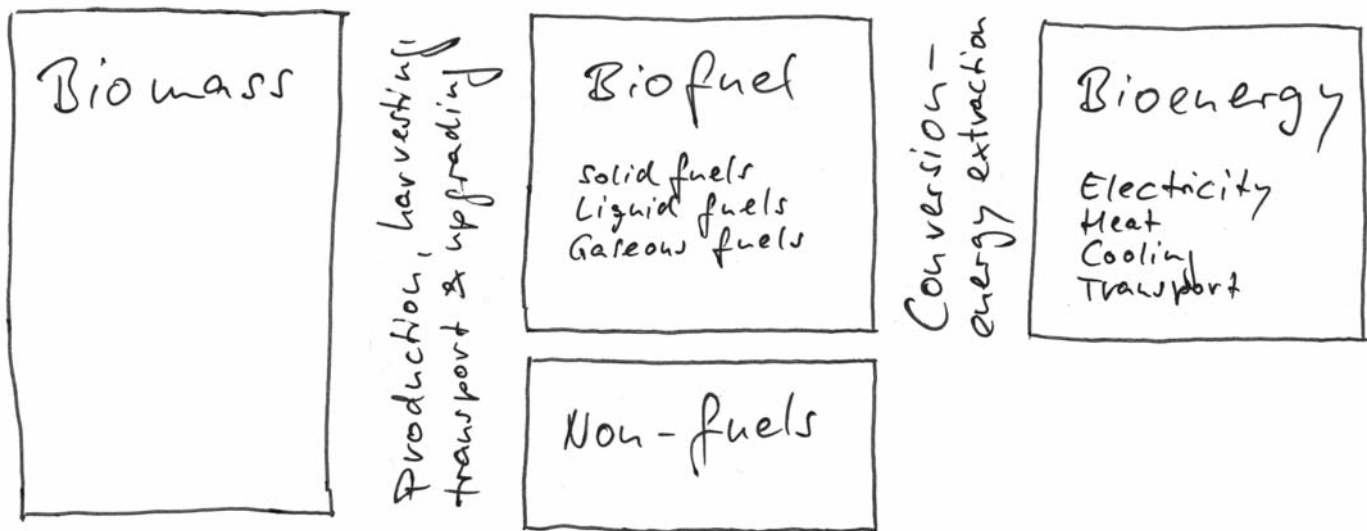 Biomass
Production, harvesting,
transport & upgrading
Biofuel
Solid fuels
Liquid fuels
Gaseous fuels
Non-fuels
Conversion –
energy extraction
Bioenergy
Electricity
Heat
Cooling
Transport